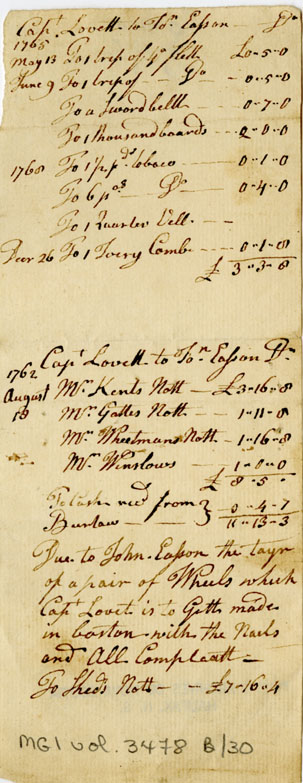 Capt Lovett to Jon Easson Dr
1765
May 13 To 1 trip of ye flett £0-5-0
June 9 To 1 trip of Do 0-5-0
To a Swordbellt 0-7-0
To 1 thousand boards 2-0-0
1768 To 1 pd tobaco 0-1-0
To 6 Do 0-4-0
To 1 Quarter Vell
Decr 26 To 1 Ivery Comb 0-1-8
£ 3-3-8
1762 Capt Lovett to Jon Easson Dr
August
18 Mr Kents Nott £3-16-8
Mr Gattes Nott 1-11-8
Mr Whestmans Nott 1-16-8
Mr Winslows 1-0-0
£ 8-5-
To Cash recd from } 0-4-7
Burlaw 11-13-3
Due to John Easson the tayr
of a pair of Wheels which
Capt Lovet is to Gett made
in boston with the Nails
and All Compleatt
To Sheds Nott £7-16-4
MG1 vol. 3478 B/30